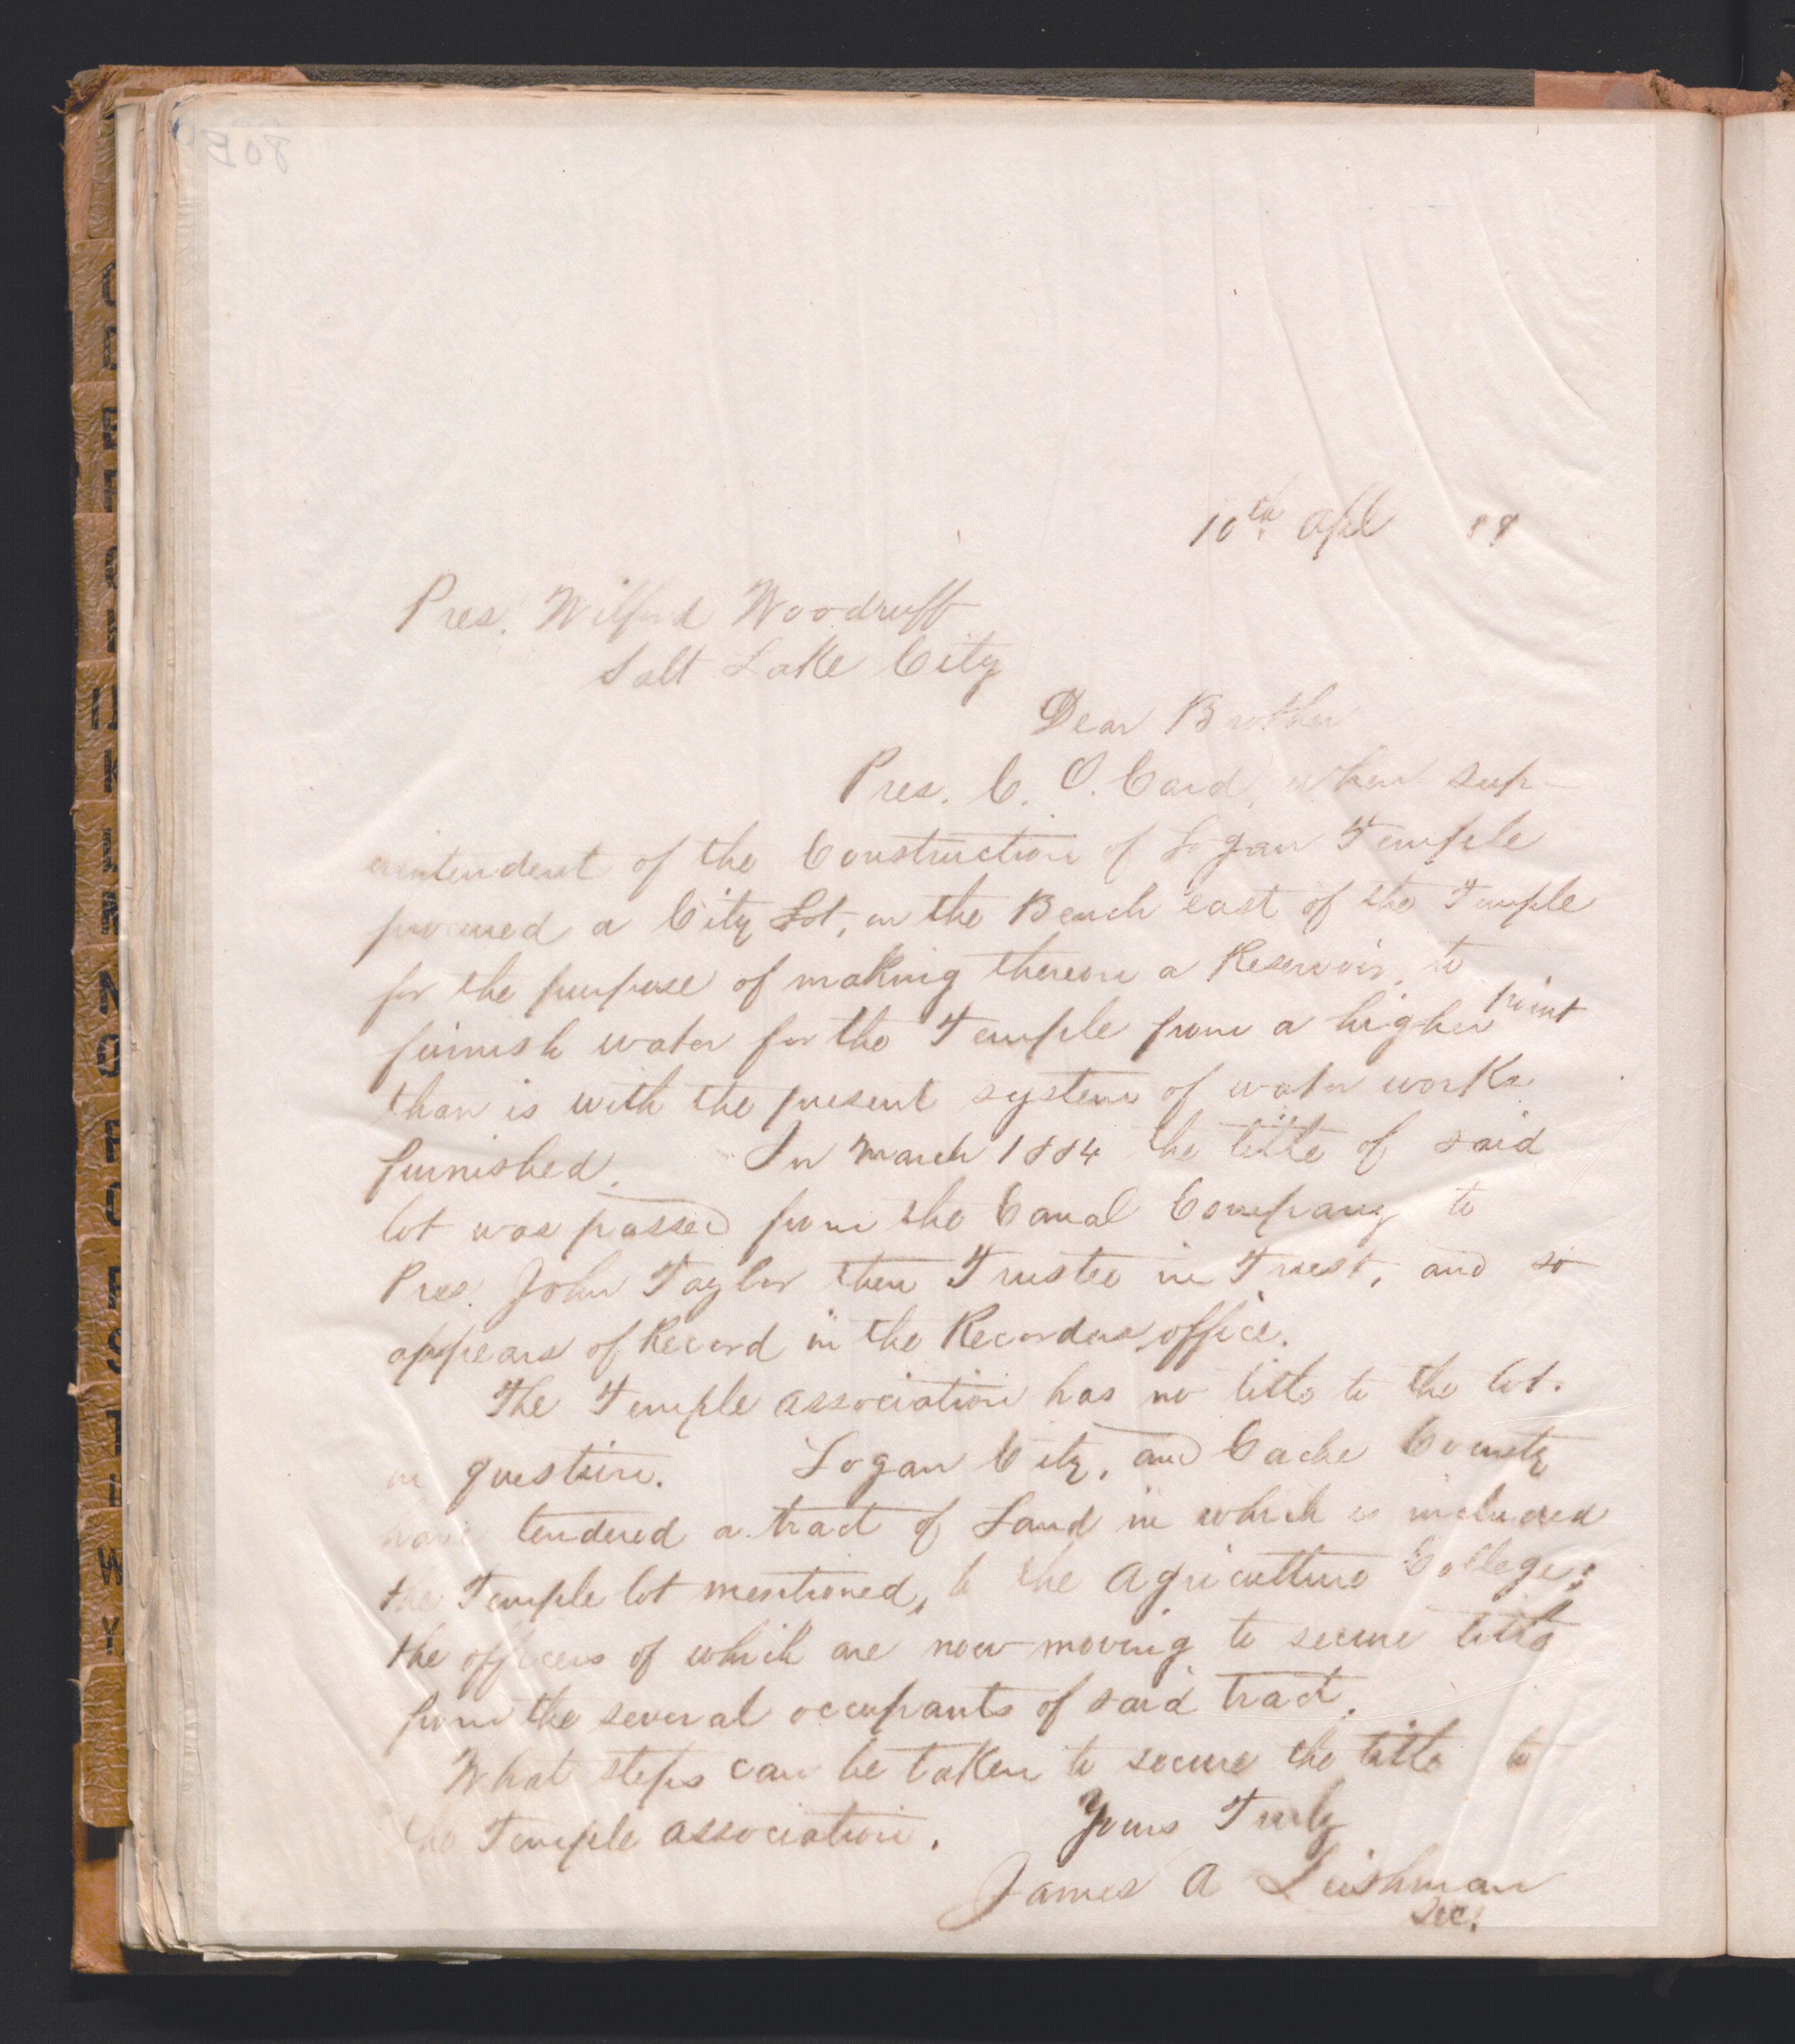 10th Apl 89
Pres. Wilford Woodruff
Salt Lake City
Dear Brother
Pres. C. O. Card, when sup-
erintendent of the Construction of Logan Temple
procured a City Lot, on the Bench east of the Temple
for the purpose of making thereon a Reservoir, to
furnish water for the Temple from a higher point
than is with the present system of water works
furnished. In March 1884 the title of said
lot was passed from the Canal Company to
Pres. John Taylor then Trustee in Trust, and so
appears of Record in the Recorders office.
The Temple association has no title to the lot.
in question. Logan City, and Cache County
have tendered a tract of Land in which is included
the Temple lot mentioned, to the Agriculture College;
the officers of which are now moving to secure title
from the several occupants of said tract.
What steps can be taken to secure the title to
the Temple association. Yours Truly
James A Leishman
Sec.